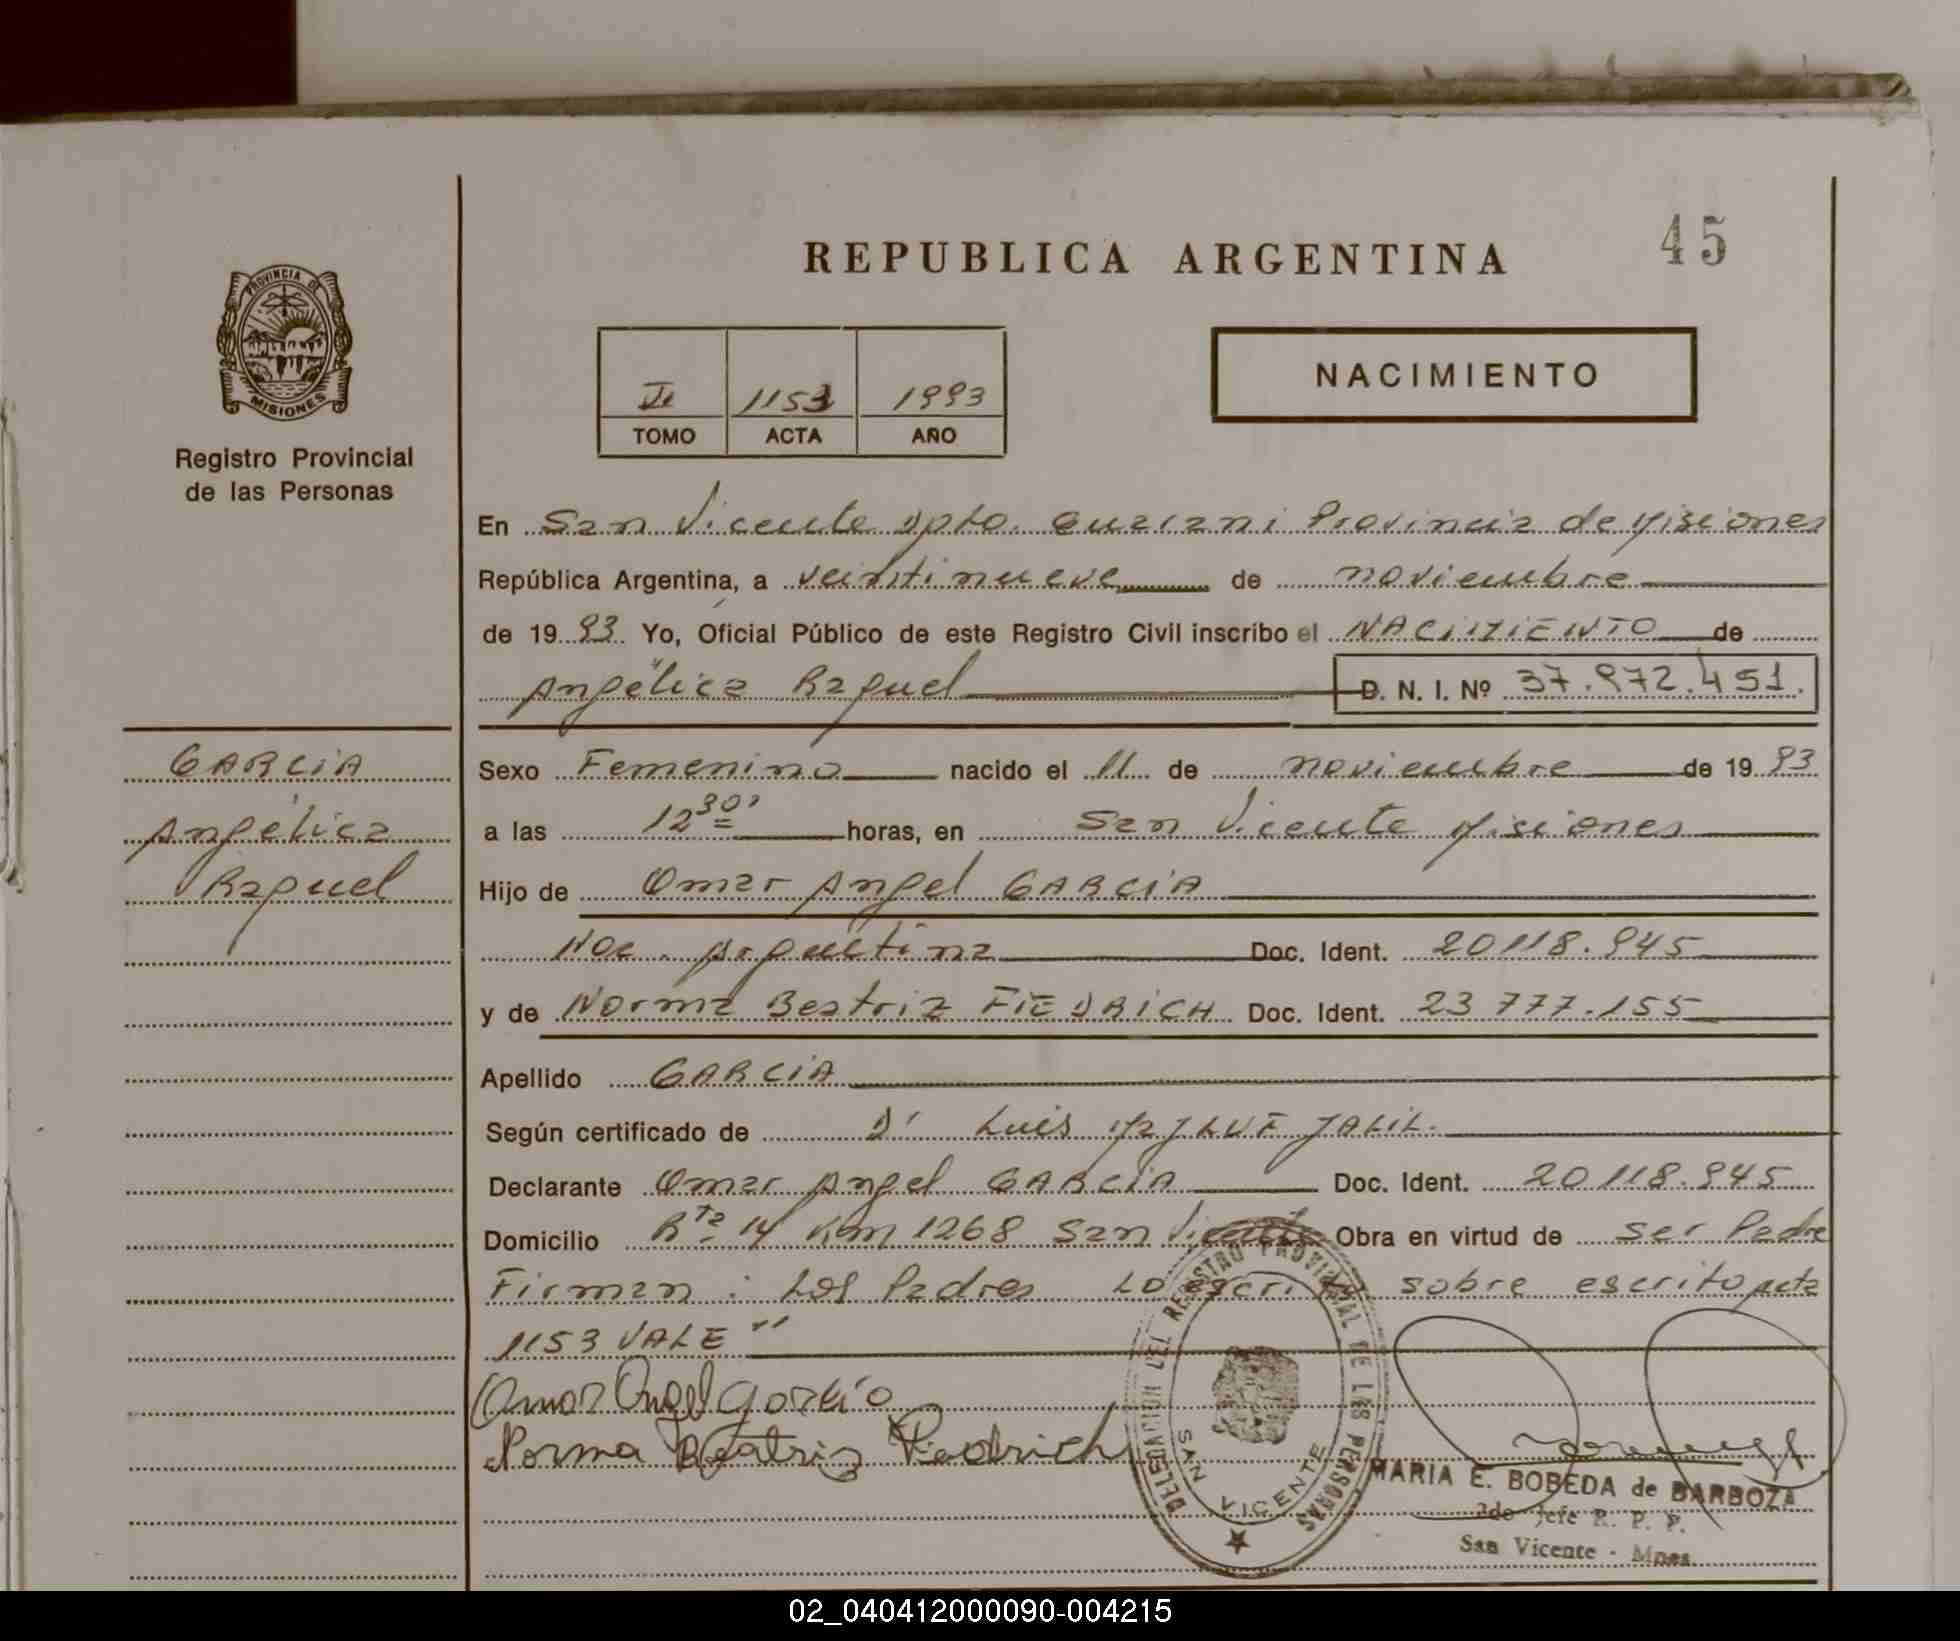 REPUBLICA ARGENTINA
45
PROVINCIA DE
MISIONES
Registro Provincial
de las Personas
NACIMIENTO
II 1153 1993
TOMO ACTA AÑO
En San Vicente Dpto. Guarani Provincia de Misiones
República Argentina, a veintinueve de noviembre
de 1993 Yo, Oficial Público de este Registro Civil inscribo el NACIMIENTO de
Angélica Raquel D. N. I. Nº 37.972.451.
GARCIA
Angélica
Raquel
Sexo Femenino nacido el 11 de noviembre de 1993
a las 12 30' horas, en San Vicente Misiones
Hijo de Omar Angel GARCIA
Nac. Argentina Doc. Ident. 20118.945
y de Norma Beatriz FIEDRICH Doc. Ident. 23 777.155
Apellido GARCIA
Según certificado de Dr Luis JALIL.
Declarante Omar Angel GARCIA Doc. Ident. 20118.945
Domicilio Rta 14 Km 1268 San Vicente Obra en virtud de ser Padre
Firman : Los Padres Lo escrito sobre escrito acta
1153 VALE"
Omar Angel Garcia
Norma Beatriz Fiedrich
DELEGACION DEL REGISTRO PROVINCIAL DE LAS PERSONAS
SAN VICENTE
MARIA E. BOBEDA de BARBOZA
2do Jefe R. P. P.
San Vicente - Mnes.
02_040412000090-004215